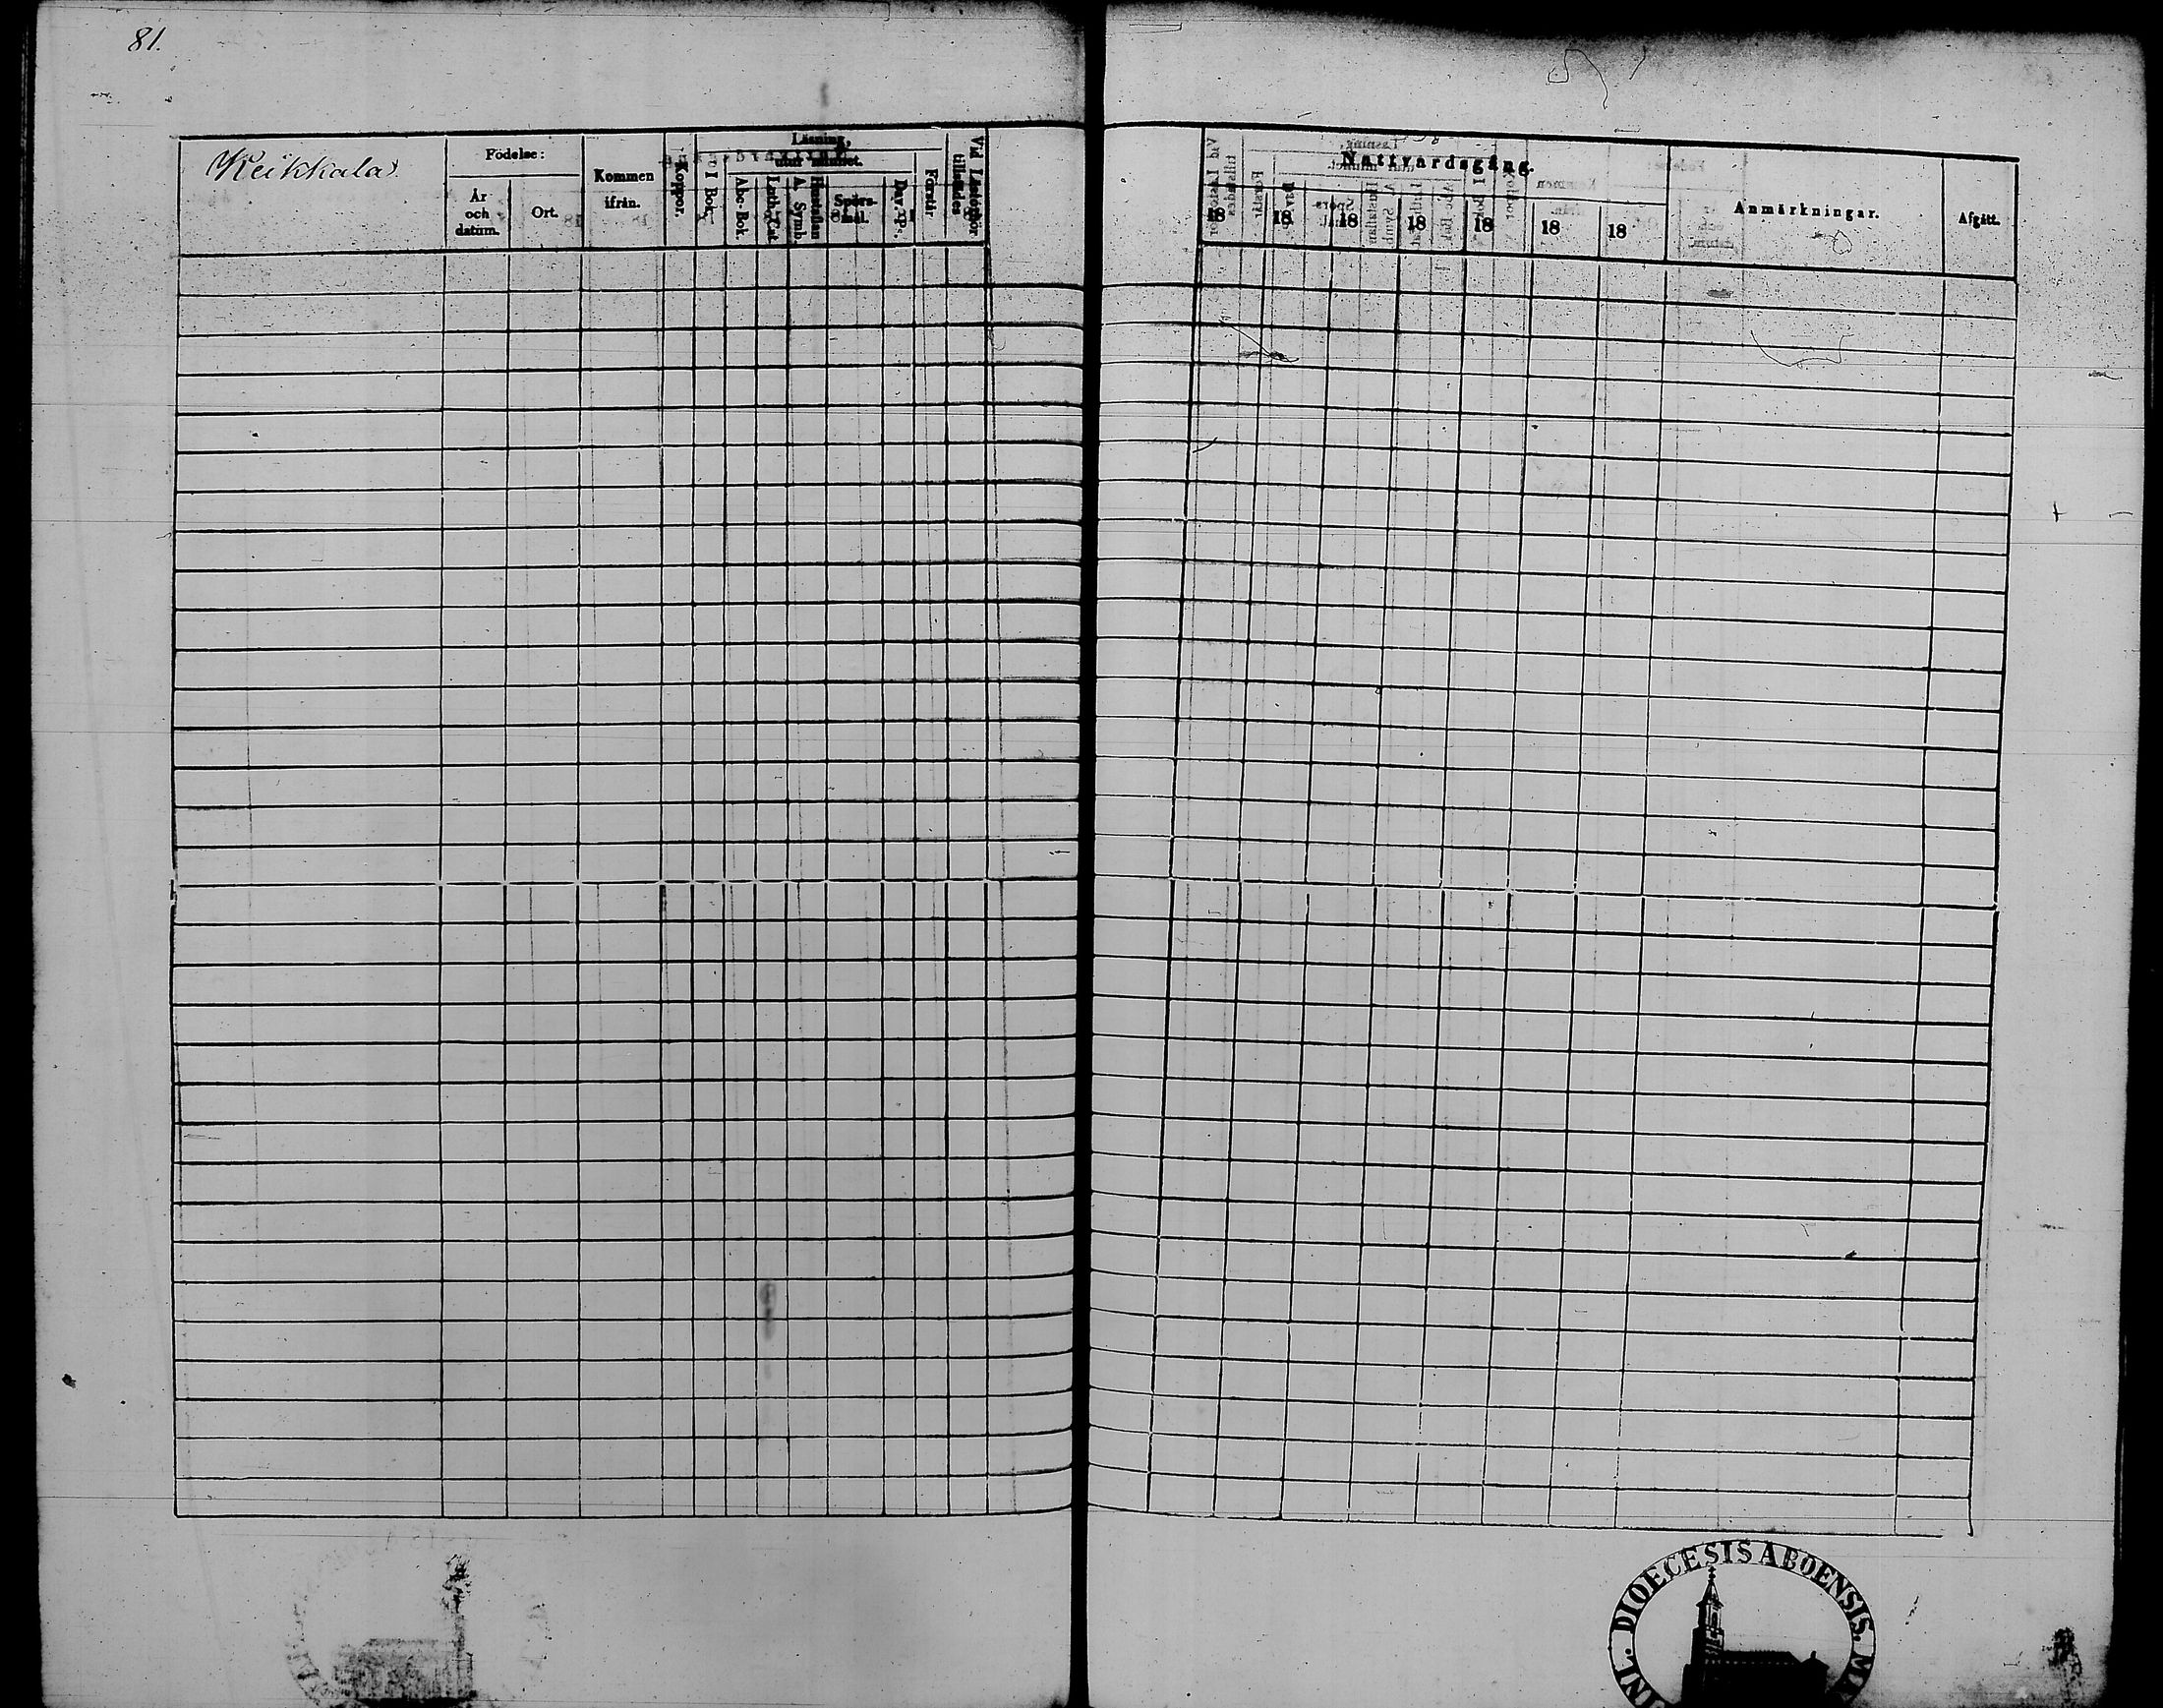 81.
Keikkala
Födelse:
År
och
datum.
Ort.
Kommen
ifrån.
Koppor.
Läsning,
I Bok.
utur minnet.
Abc-Bok.
Luth. Cat.
Hustaflan
A. Symb.
Spörs-
mål.
Dav. Ps.
Förstår
Vid Läseförhör
tillstädes
Nattvardsgång.
18 18 18 18 18 18 18
Anmärkningar.
Afgått.
DIOECESIS ABOENSIS.